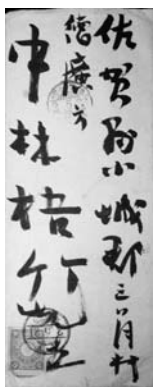 佐賀県小城郡三日月村
繪廣方
中林梧竹先生